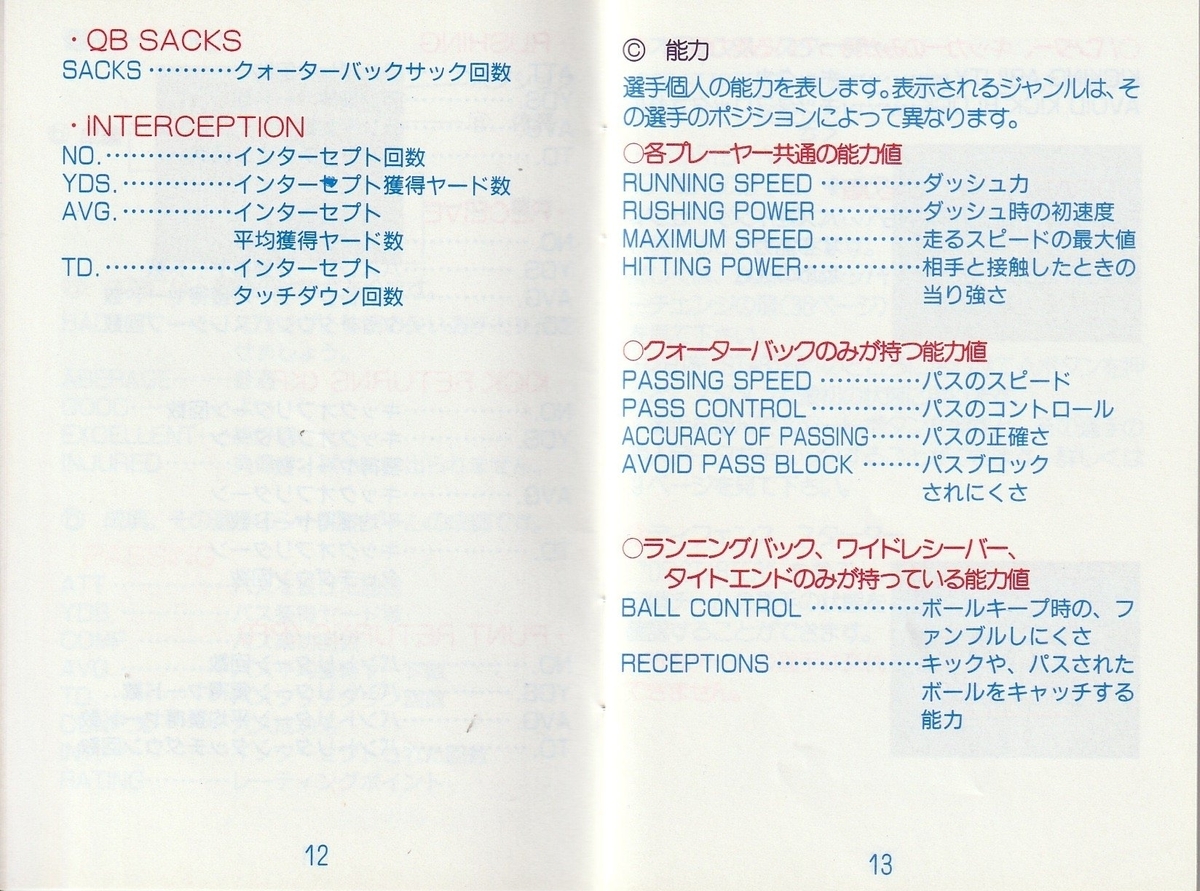 ・QB SACKS
SACKS ‥‥‥‥‥クォーターバックサック回数
・INTERCEPTION
NO. ‥‥‥‥‥‥‥インターセプト回数
YDS. ‥‥‥‥‥‥インターセプト獲得ヤード数
AVG. ‥‥‥‥‥‥インターセプト
平均獲得ヤード数
TD. ‥‥‥‥‥‥‥インターセプト
タッチダウン回数
12
Ⓒ 能力
選手個人の能力を表します。表示されるジャンルは、そ
の選手のポジションによって異なります。
○各プレーヤー共通の能力値
RUNNING SPEED ‥‥‥‥‥‥ダッシュ力
RUSHING POWER ‥‥‥‥‥‥ダッシュ時の初速度
MAXIMUM SPEED ‥‥‥‥‥‥走るスピードの最大値
HITTING POWER ‥‥‥‥‥‥相手と接触したときの
当り強さ
○クォーターバックのみが持つ能力値
PASSING SPEED ‥‥‥‥‥‥パスのスピード
PASS CONTROL ‥‥‥‥‥‥パスのコントロール
ACCURACY OF PASSING‥‥‥パスの正確さ
AVOID PASS BLOCK ‥‥‥‥パスブロック
されにくさ
○ランニングバック、ワイドレシーバー、
タイトエンドのみが持っている能力値
BALL CONTROL ‥‥‥‥‥‥ボールキープ時の、フ
ァンブルしにくさ
RECEPTIONS ‥‥‥‥‥‥‥‥キックや、パスされた
ボールをキャッチする
能力
13